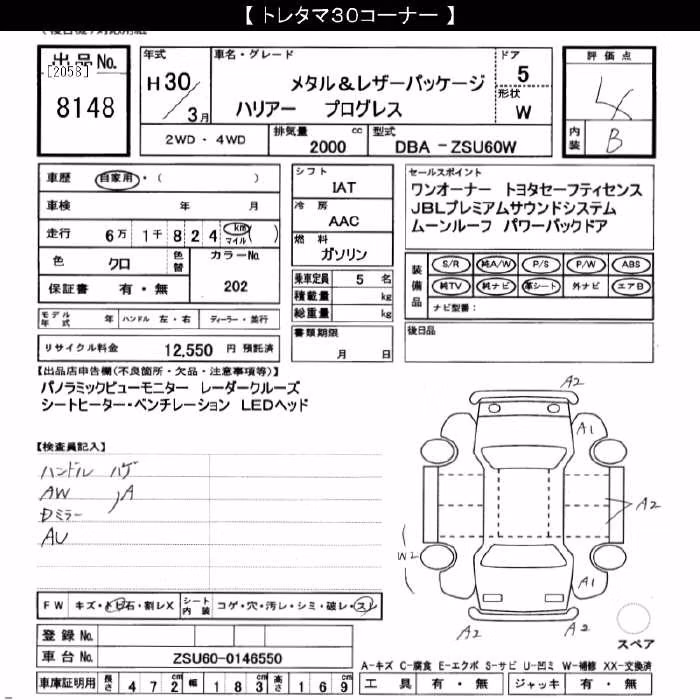 【 トレタマ30コーナー 】
出品No.
[2058]
8148
年式
H30
3月
車名・グレード
メタル&レザーパッケージ
ハリアー プログレス
ドア
5
形状
W
評価点
4
内装
B
2WD・4WD
排気量
2000
cc
型式
DBA-ZSU60W
車歴
自家用・( )
車検 年 月
走行 6万 1千 8 2 4 km マイル ( )
色 クロ
色替
カラーNo.
202
保証書 有・無
シフト
IAT
冷房
AAC
燃料
ガソリン
乗車定員 5 名
積載量 kg
総重量 kg
書類期限
月 日
セールスポイント
ワンオーナー トヨタセーフティセンス
JBLプレミアムサウンドシステム
ムーンルーフ パワーバックドア
装備品
S/R 純A/W P/S P/W ABS
純TV 純ナビ 革シート 外ナビ エアB
ナビ型番:
後日品
モデル年式 年 ハンドル 左・右 ディーラー・並行
リサイクル料金 12,550 円 預託済
【出品店申告欄(不良箇所・欠品・注意事項等)】
パノラミックビューモニター レーダークルーズ
シートヒーター・ベンチレーション LEDヘッド
【検査員記入】
ハンドル ハゲ
AW
A
Dミラー
AU
A2
A1
A2
W2
A1
A2
A2
スペア
FW キズ・トビ石・割レX
シート内装 コゲ・穴・汚レ・シミ・破レ・スレ
登録No.
車台No. ZSU60-0146550
車庫証明用 長さ 472cm 幅 183cm 高さ 169cm
A-キズ C-腐食 E-エクボ S-サビ U-凹ミ W-補修 XX-交換済
工具 有・無 ジャッキ 有・無